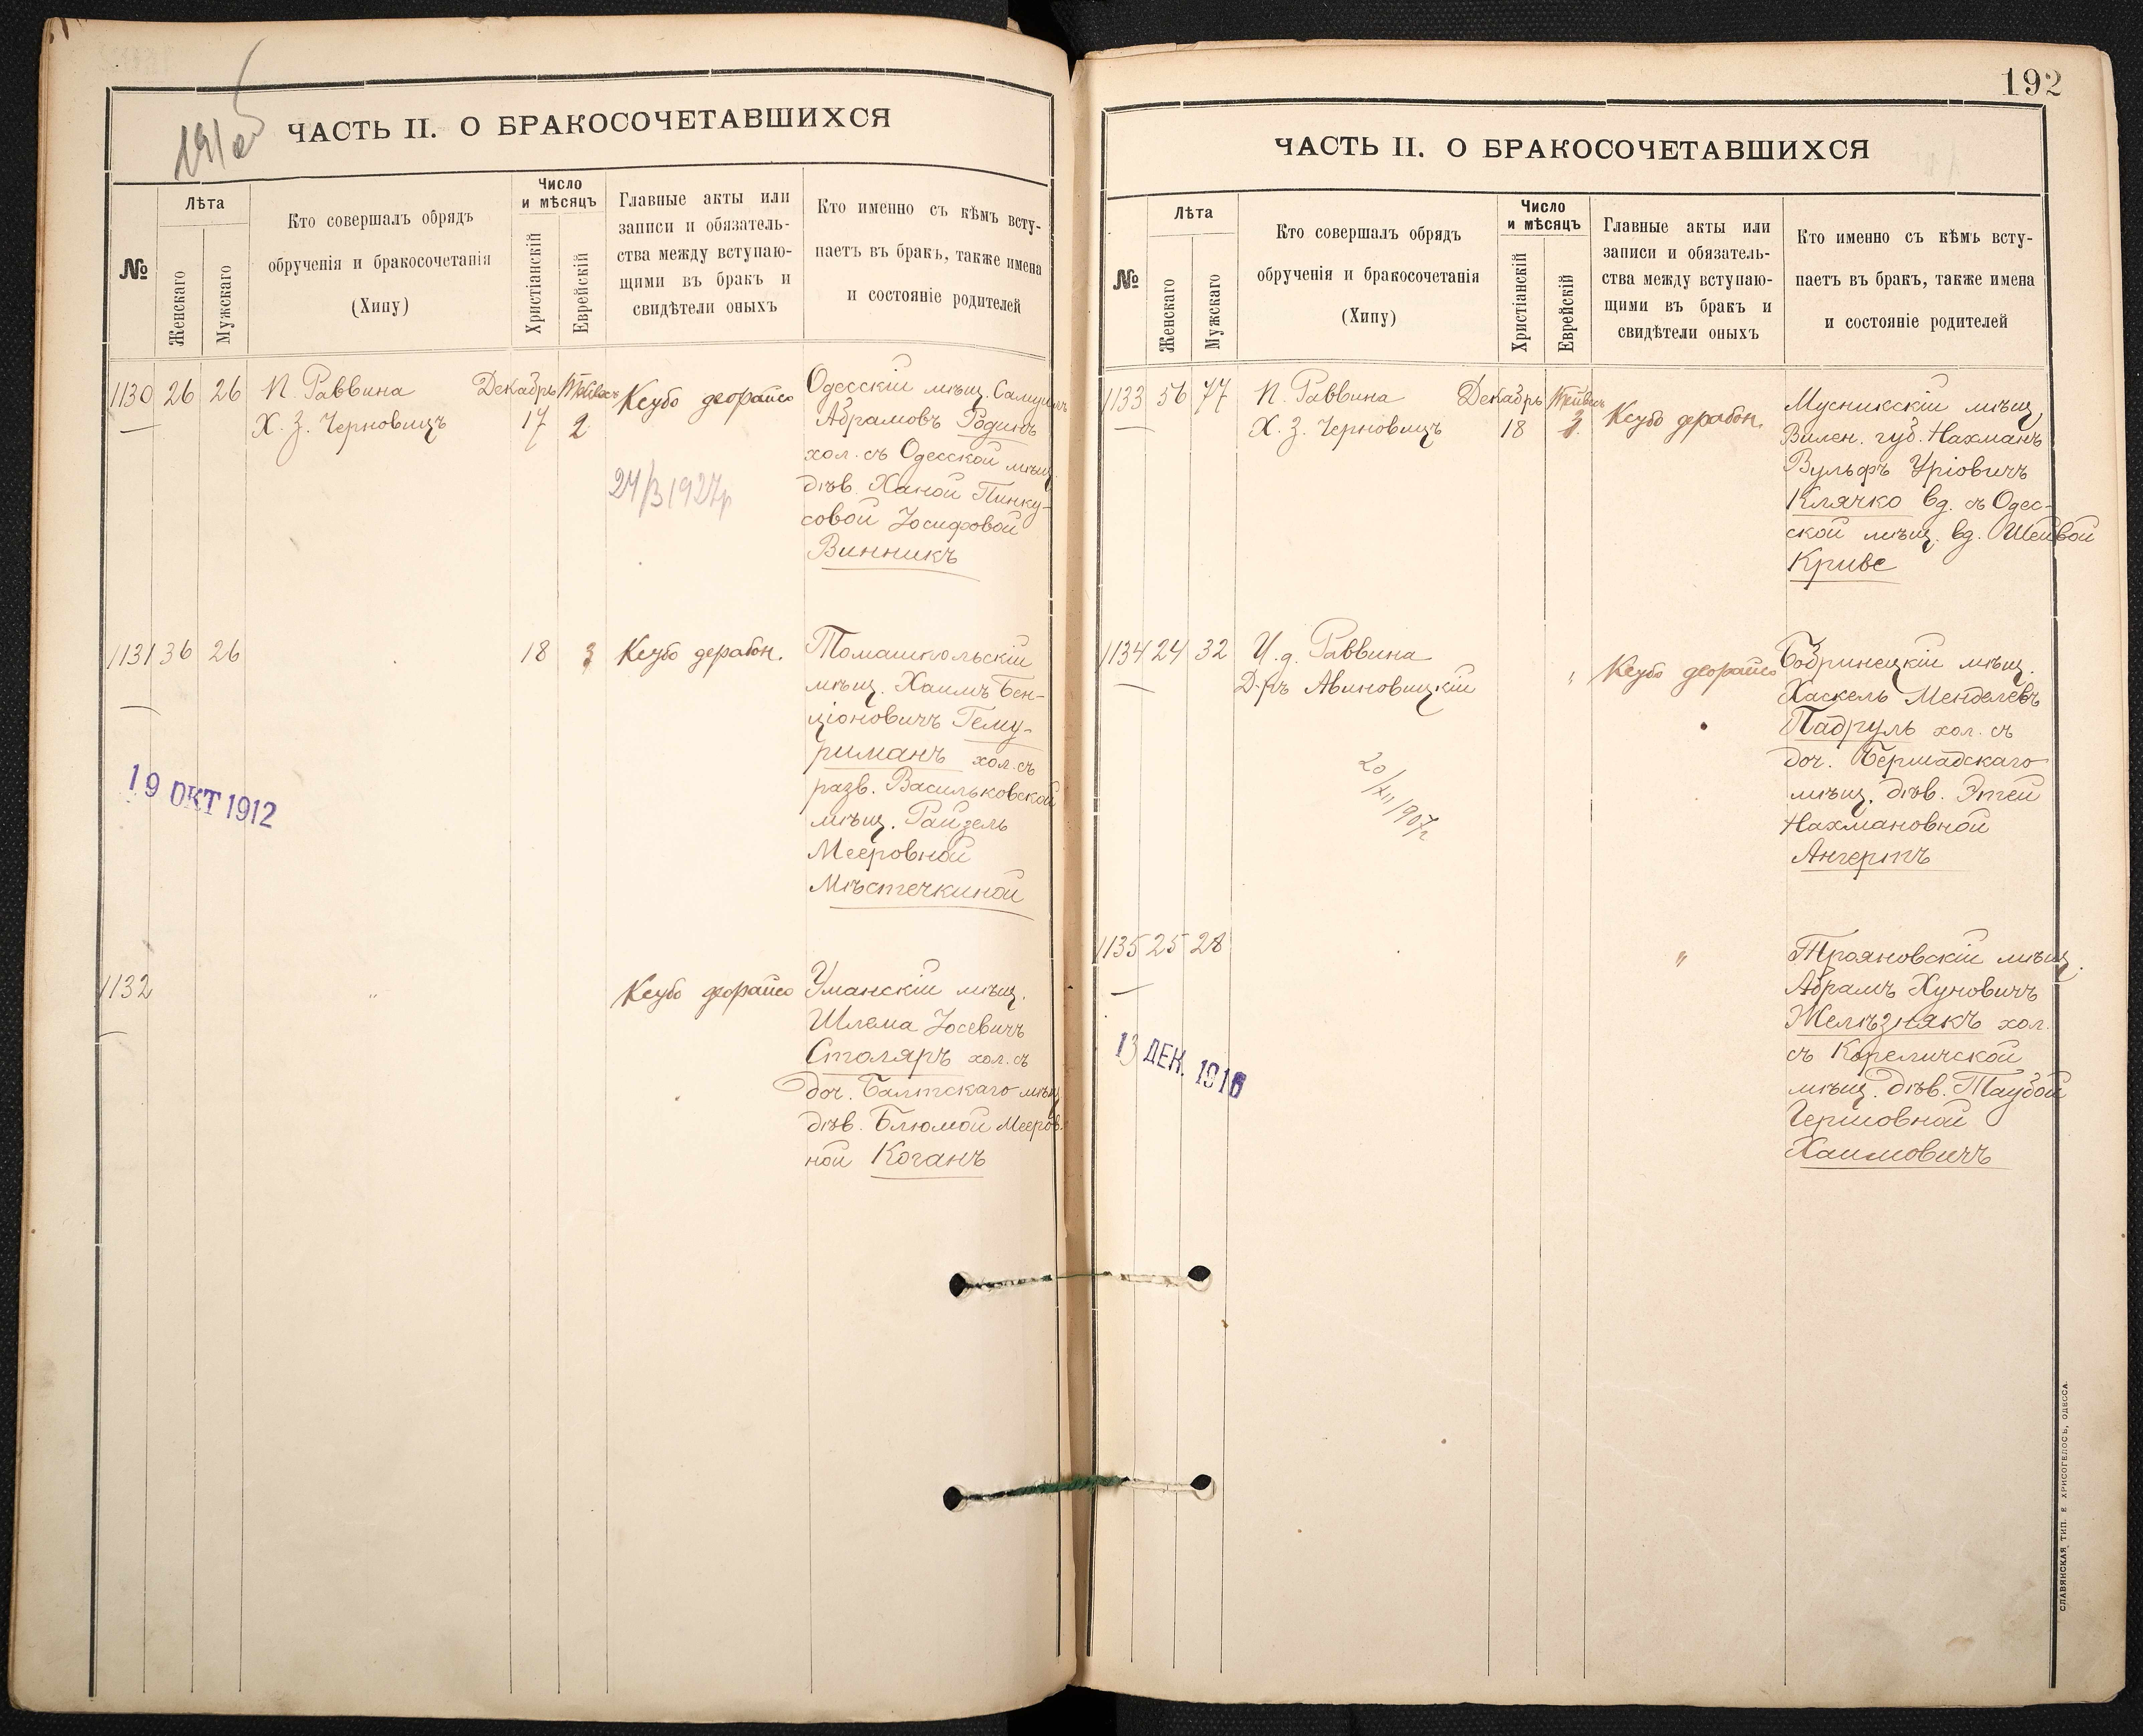 ЧАСТЬ II. О БРАКОСОЧЕТАВШИХСЯ
№
Лѣта
Женскаго
Мужскаго
Кто совершалъ обрядъ
обрученія и бракосочетанія
(Хипу)
Число
и мѣсяцъ
Христіанскій
Еврейскій
Главные акты или
записи и обязатель-
ства между вступаю-
щими въ бракъ и
свидѣтели оныхъ
Кто именно съ кѣмъ всту-
паетъ въ бракъ, также имена
и состояніе родителей
1130 26 26 П. Раввина Декабрь Ксубо деорайсо
Х. З. Черновицъ 17 2
Одесскій мѣщ. Самуилъ
Абрамовъ Родинъ
хол. съ Одесской мѣщ
дѣв. Ханой Пинку-
совой Іосифовой
Винникъ
24/3 1927р
1131 36 26 18 3 Ксубо дерабон.
Томашпольскій
мѣщ. Хаимъ Бен-
ціоновичъ Гему-
риманъ хол. съ
разв. Васильковской
мѣщ. Райзель
Мееровной
Мѣстечкиной
19 ОКТ 1912
1132 " Ксубо деорайсо
Уманскій мѣщ.
Шлема Іосевичъ
Столяръ хол. съ
доч. Балтскаго мѣщ
дѣв. Блюмой Мееров-
ной Коганъ
192
ЧАСТЬ II. О БРАКОСОЧЕТАВШИХСЯ
№
Лѣта
Женскаго
Мужскаго
Кто совершалъ обрядъ
обрученія и бракосочетанія
(Хипу)
Число
и мѣсяцъ
Христіанскій
Еврейскій
Главные акты или
записи и обязатель-
ства между вступаю-
щими въ бракъ и
свидѣтели оныхъ
Кто именно съ кѣмъ всту-
паетъ въ бракъ, также имена
и состояніе родителей
1133 56 77 П. Раввина Декабрь Ксубо дерабон.
Х. З. Черновицъ 18 3
Мусникскій мѣщ,
Вилен. губ. Нахманъ
Вульфъ Уріовичъ
Клячко вд. съ Одес-
ской мѣщ. вд. Шейвой
Криве
1134 24 32 И. д. Раввина " Ксубо деорайсо
Д-ръ Авиновицкій
Бобринецкій мѣщ.
Хаскель Менделевъ
Падруль хол. съ
доч. Бершадскаго
мѣщ. дѣв. Этей
Нахмановной
Ангертъ
20/XII/907г
1135 25 28 "
Трояновскій мѣщ.
Абрамъ Хуновичъ
Желѣзнякъ хол.
съ Кореличской
мѣщ. дѣв. Таубой
Гершовной
Хаимовичъ
13 ДЕК. 1916
СЛАВЯНСКАЯ ТИП. Е ХРИСОГЕЛОСЪ, ОДЕССА.